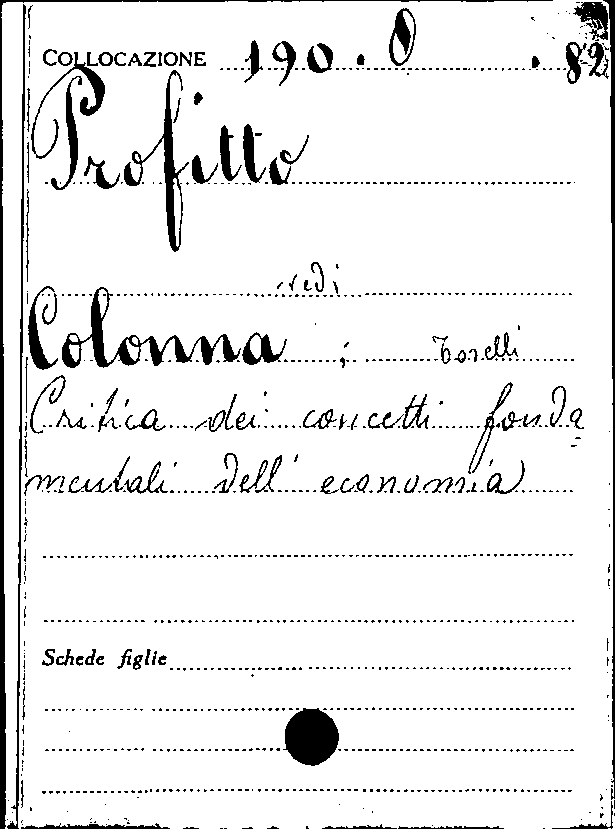 COLLOCAZIONE 190 . 8 . 82
Profitto
vedi
Colonna ; Torelli
Critica dei concetti fonda=
mentali dell' economia
Schede figlie